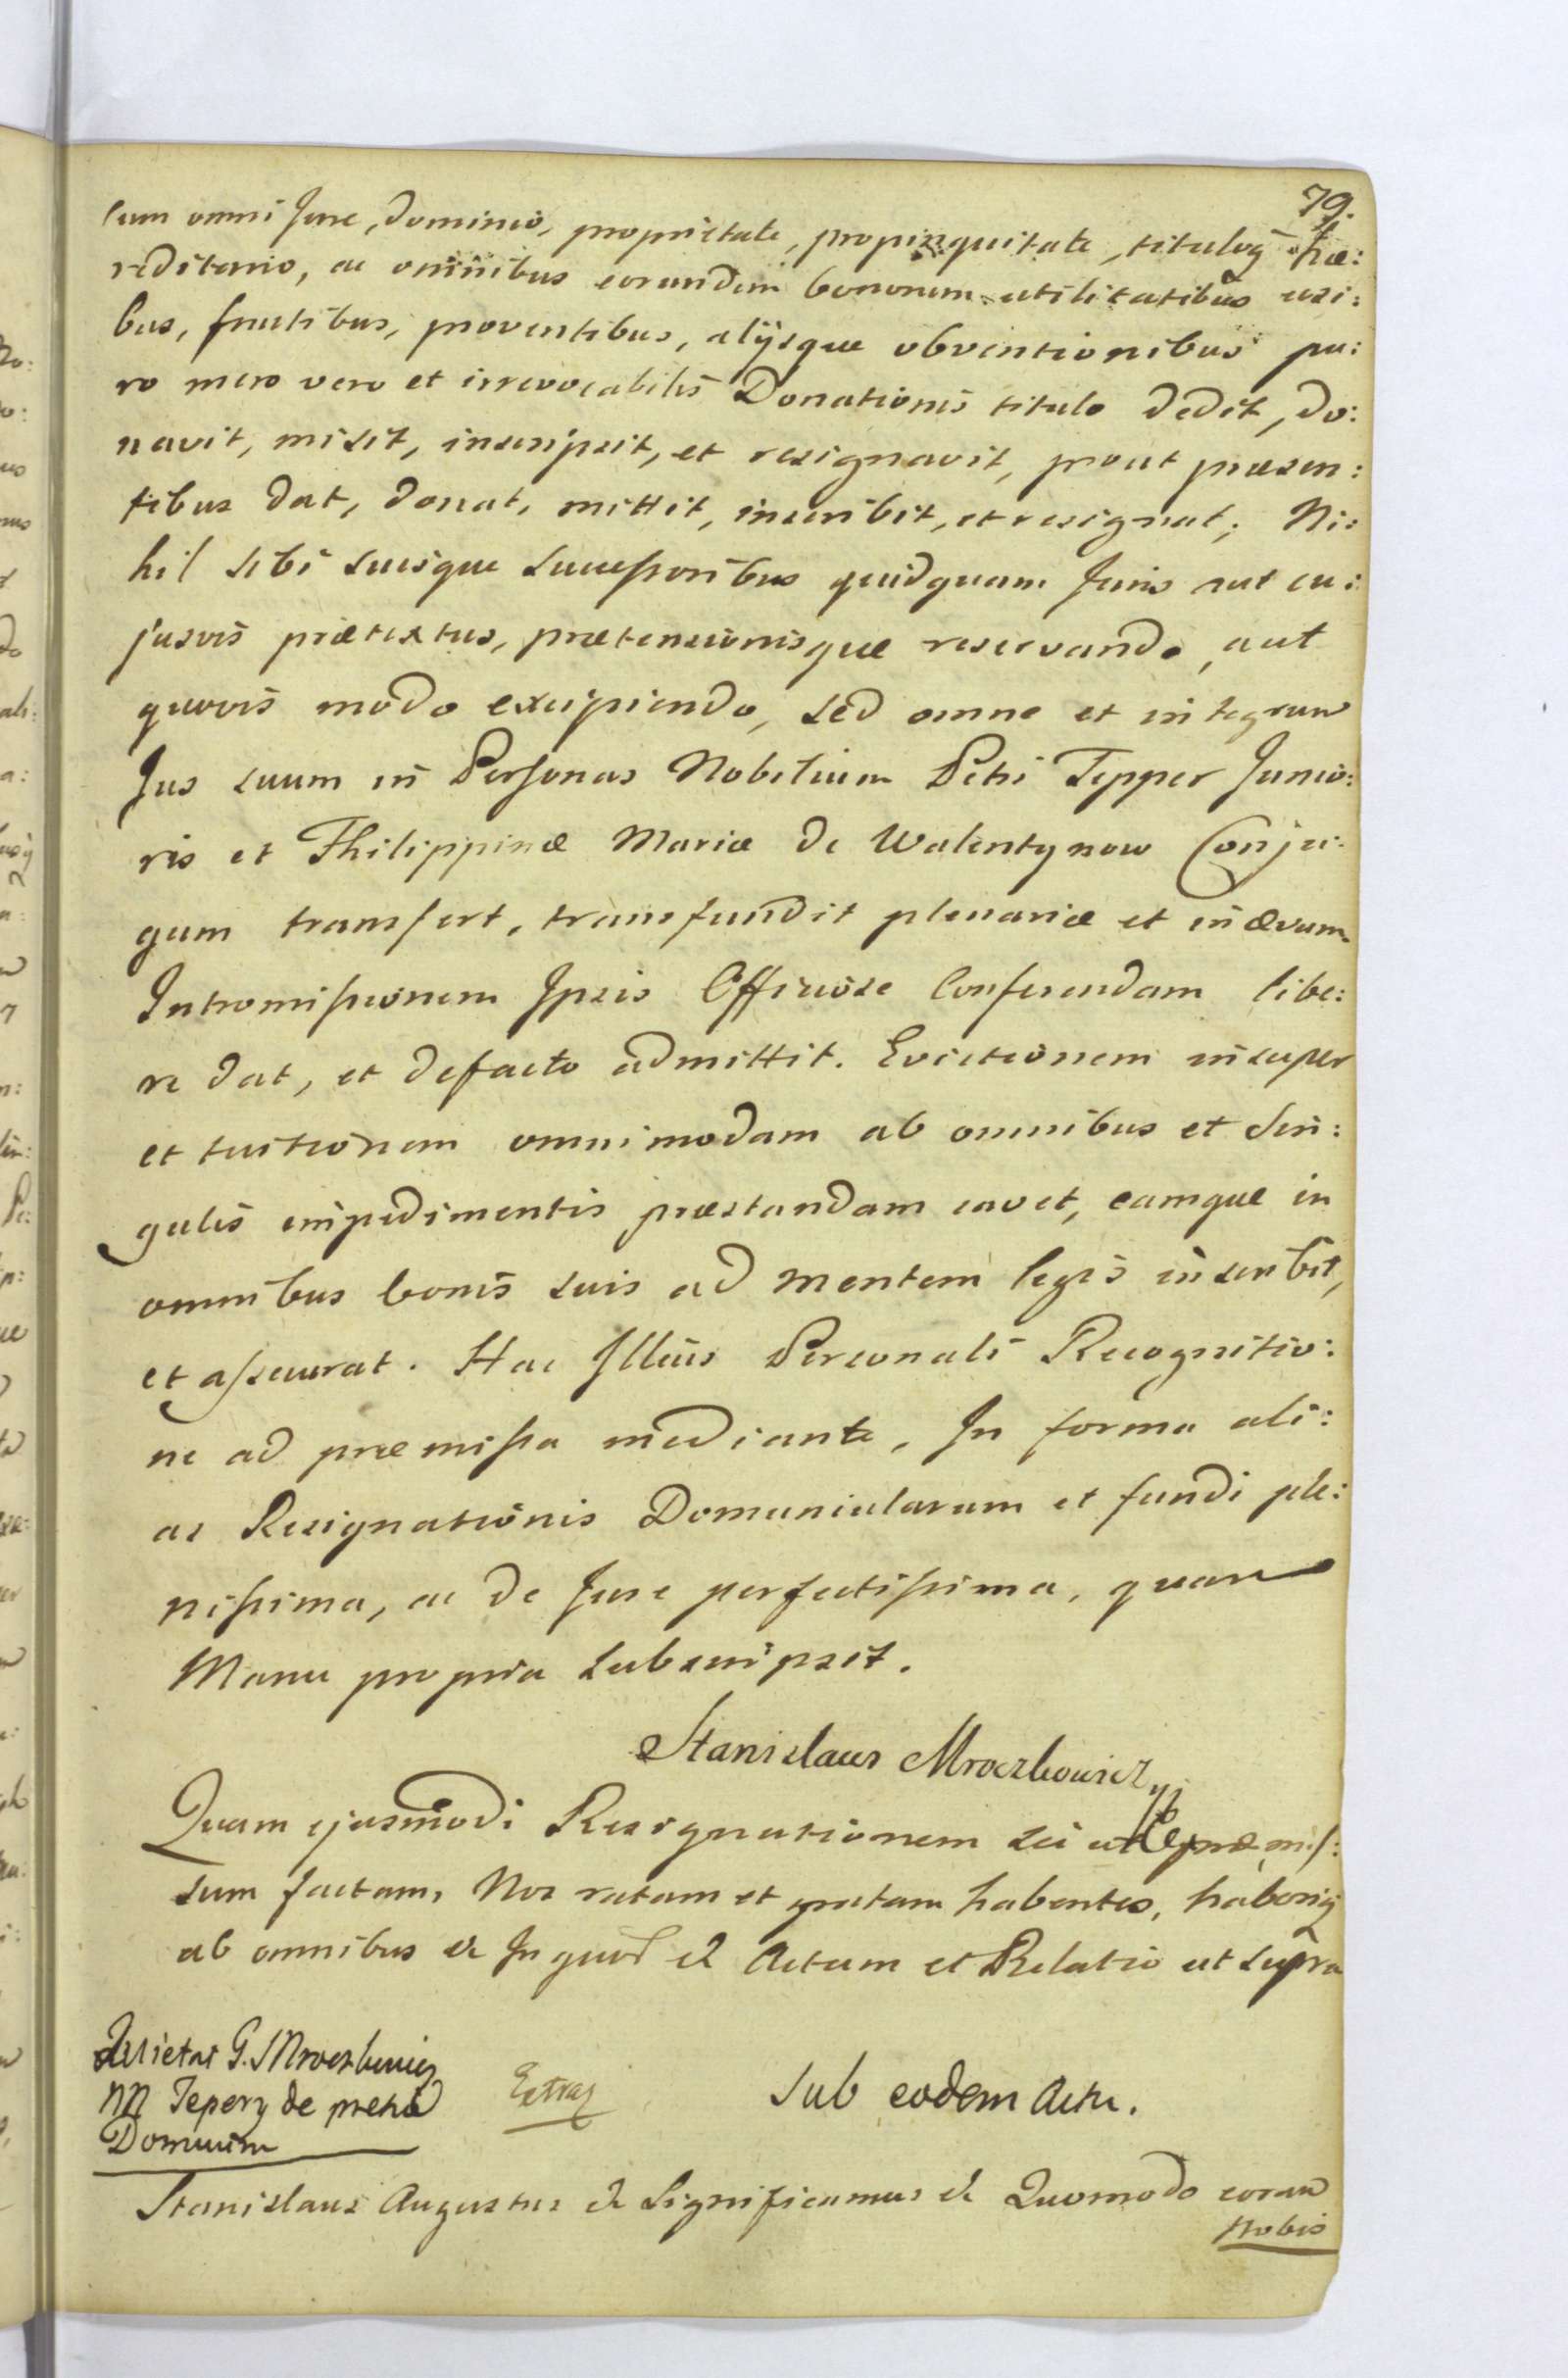 79.
cum omni Jure, dominio, proprietate, propinquitate, tituloq hæ:
reditario, ac omnibus eorundem bonorum utilitatibus usi:
bus, fructibus, proventibus, alijsque obventionibus pu:
ro mero vero et irrevocabilis Donationis titulo dedit, do:
navit, misit, inscripsit, et resignavit, prout præsen:
tibus dat, donat, mittit, inscribit, et resignat; Ni:
hil sibi suisque successoribus quidquam Juris aut cu:
jusvis prætextus, prætensionisque reservando, aut
quovis modo excipiendo, sed omne et integrum
Jus suum in Personas Nobilium Petri Tepper Junio:
ris et Philippinæ Mariæ de Walentynow Conju:
gum transfert, transfundit plenariæ et in ævum
Intromissionem Ipsis Officiose Conferendam libe:
re dat, et defacto admittit. Evictionem insuper
et tuitionem omnimodam ab omnibus et sin:
gulis impedimentis præstandam cavet, eamque in
omnibus bonis suis ad mentem legis inscribit,
et assecurat. Hac Illius Personali Recognitio:
ne ad præmissa mediante, In forma ali:
as Resignationis Domuncularum et fundi ple:
nissima, ac de Jure perfectissima, quam
Manu propria subscripsit.
Stanislaus Mroczkowicz
Quam ejusmodi Resignationem sic ut præmis:
sum factam, Nos ratam et gratam habentes, haberiq
ab omnibus &c In quor &c Actum et Relatio ut supra
Quietat G. Mroczkowicz
NN Tepery de pretio
Domuum
Extrad
Sub eodem Actu.
Stanislaus Augustus &c Significamus &c Quomodo coram
Nobis